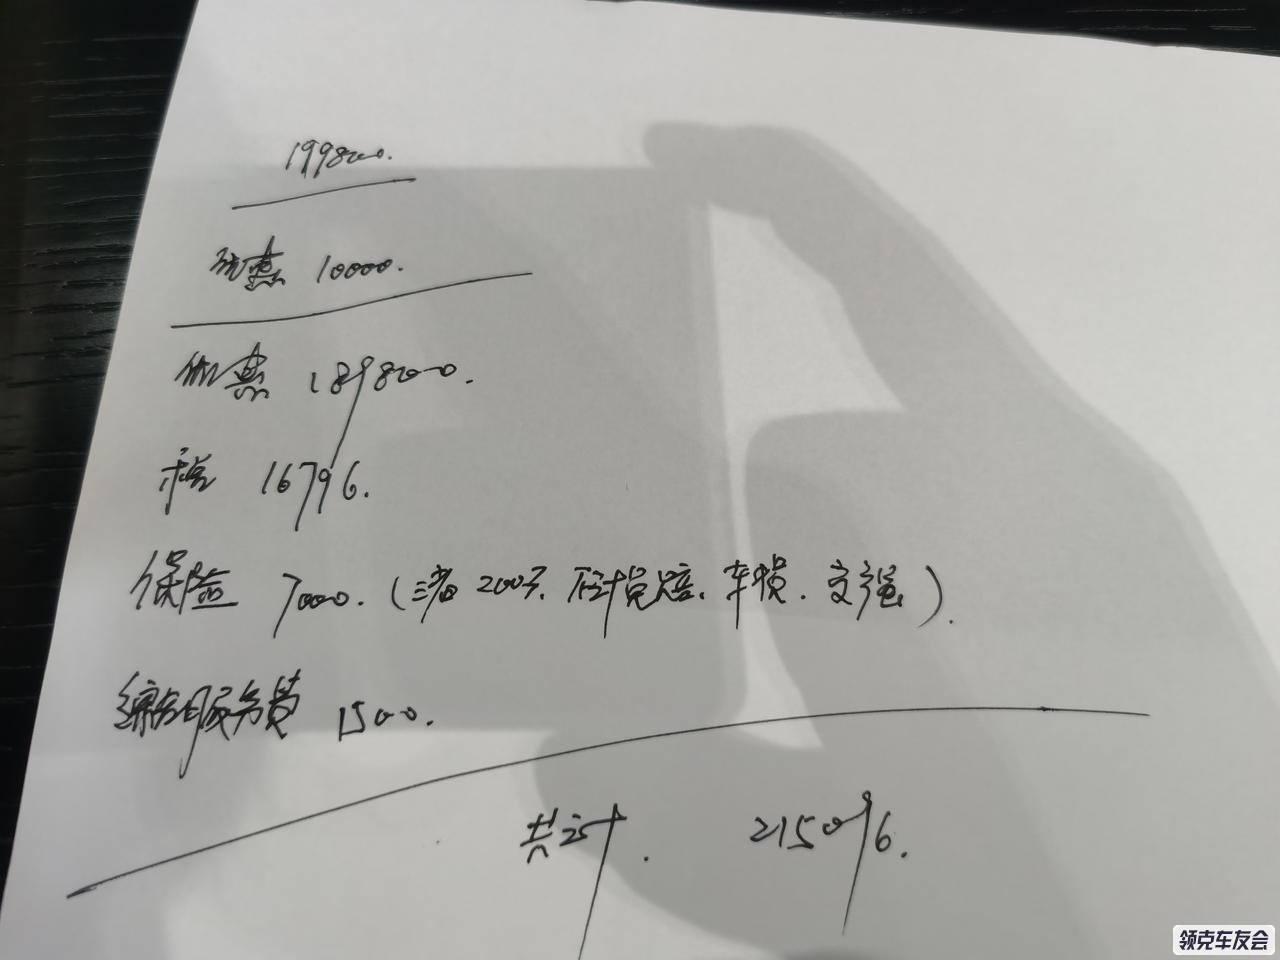 199800.
优惠 10000.
优惠 189800.
税 16796.
保险 7000. (三者200万、座损赔、车损、交强).
综合服务费 1500.
共计. 215096.
领克车友会